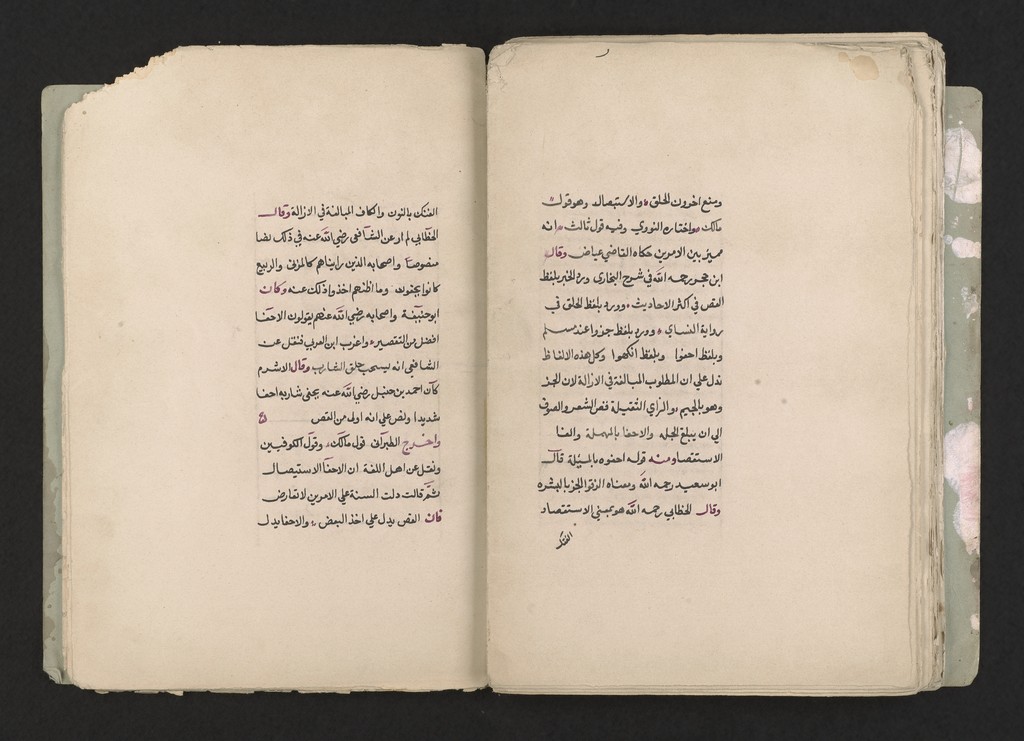 ومنع اخرون الحلق والاستيصال وهو قول
مالك واختاره النووي وفيه قول ثالث انه
مخير بين الامرين حكاه القاضي عياض وقال
ابن حجر رحمه الله في شرح البخارى ورد الخبر بلفظ
القص في اكثر الاحاديث وورد بلفظ الحلق في
رواية النساي وورد بلفظ جزوا عند مسلم
وبلفظ احفوا وبلفظ انهكوا وكل هذه الالفاظ
تدل على ان المطلوب المبالغة في الازالة لان الجز
وهو بالجيم والزاي الثقيلة قص الشعر والصوف
الي ان يبلغ الجلد والاحفا بالمهملة والفا
الاستقصا ومنه قوله احفوه بالمسئلة قال
ابو سعيد رحمه الله ومعناه الزقوا الجز بالبشره
وقال الخطابي رحمه الله هو بمعني الاستقصاء
الفنك
الفنك بالنون والكاف المبالغة في الازالة وقال
الخطابي لم ار عن الشافعى رضي الله عنه في ذلك نصا
منصوصا واصحابه الذين رايناهم كالمزنى والربيع
كانوا يحفون وما اظنهم اخذوا ذلك عنه وكان
ابو حنيفة واصحابه رضي الله عنهم يقولون الاحفا
افضل من التقصير واغرب ابن العربي فنقل عن
الشافعي انه يستحب حلق الشارب وقال الاشرم
كان احمد بن حنبل رضي الله عنه يحفى شاربه احفا
شديدا ونص على انه اولى من القص
واخرج الطبرانى قول مالك وقول الكوفيين
ونقل عن اهل اللغة ان الاحفا الاستيصال
ثم قالت دلت السنة علي الامرين لا تعارض
فان القص يدل على اخذ البعض والاحفا يدل